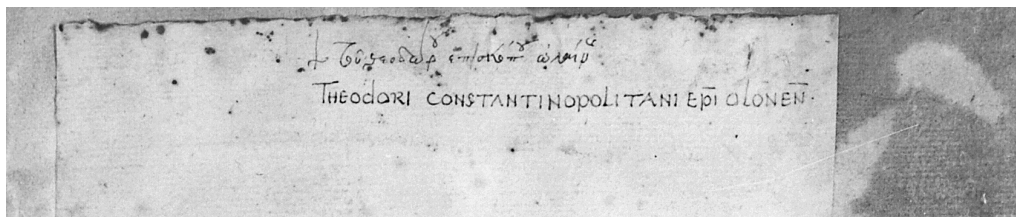 θεοδώρ ἐπισκόπ
THEODORI CONSTANTINOPOLITANI EP̄I OLONEN̄·